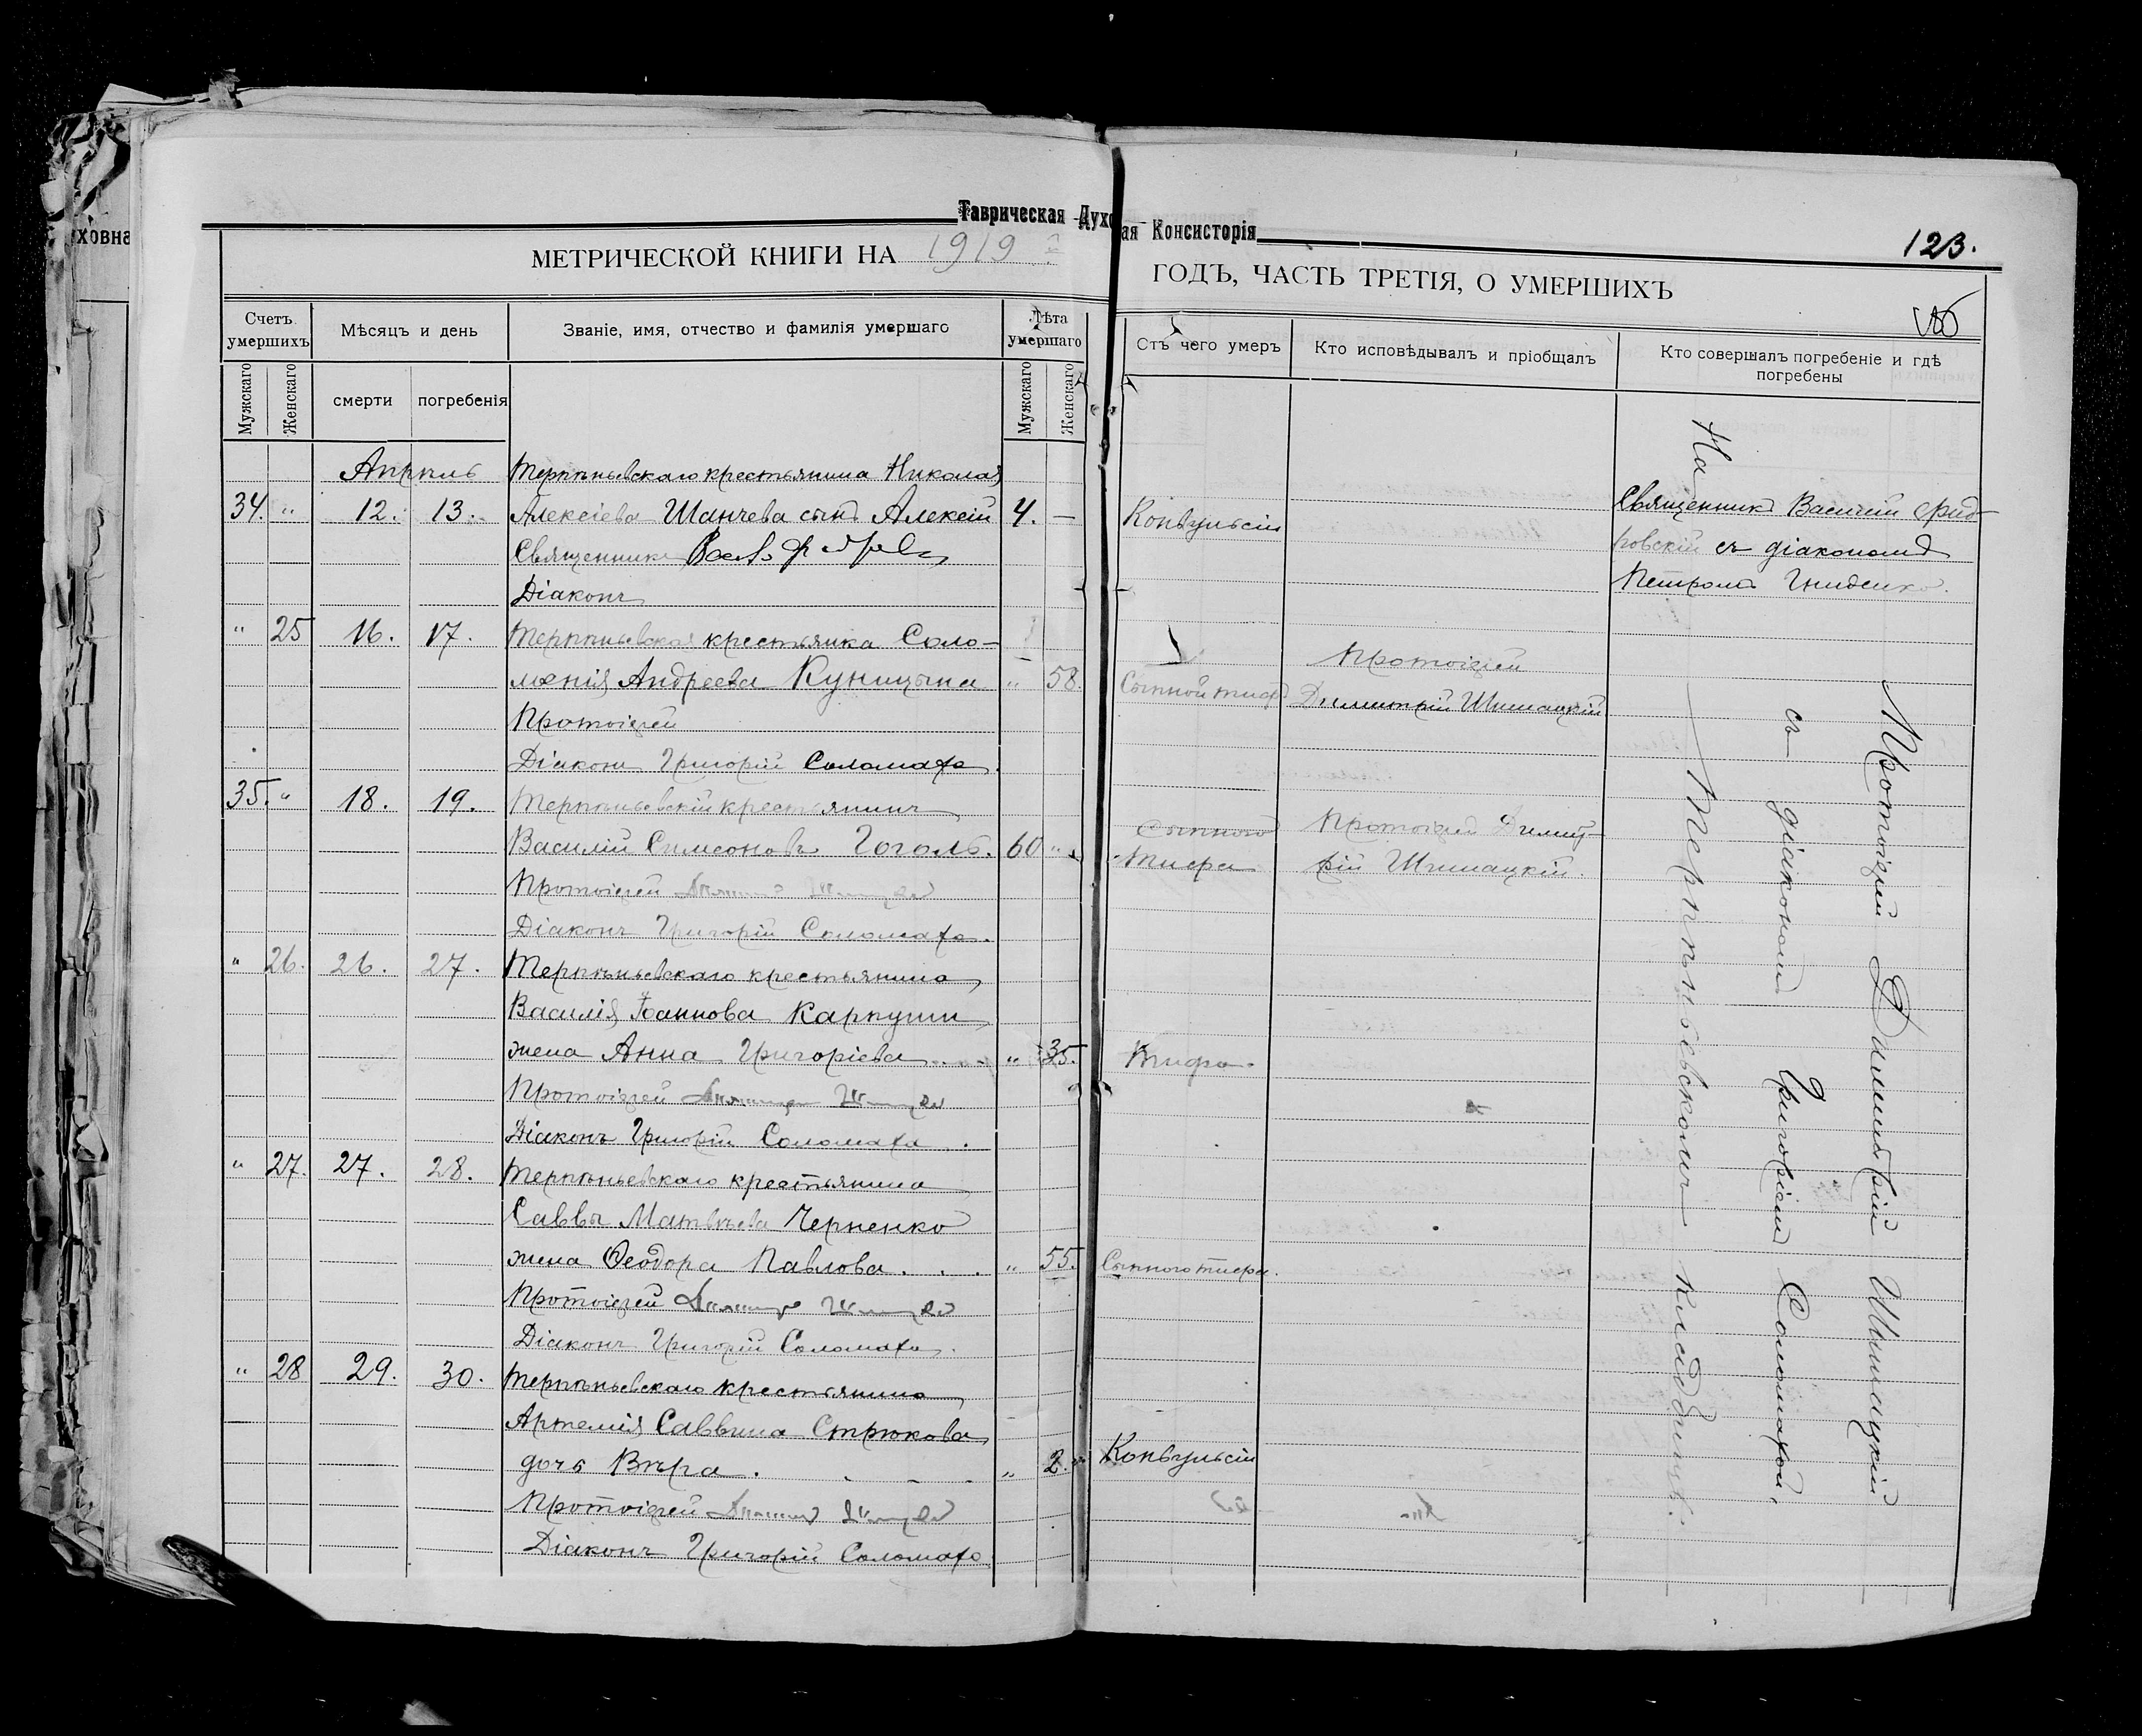 ховна
Таврическая Духо
ая Консисторія
123.
МЕТРИЧЕСКОЙ КНИГИ НА 1919 г.
ГОДЪ, ЧАСТЬ ТРЕТІЯ, О УМЕРШИХЪ
Счетъ умершихъ
Мѣсяцъ и день
Званіе, имя, отчество и фамилія умершаго
Лѣта умершаго
Отъ чего умеръ
Кто исповѣдывалъ и пріобщалъ
Кто совершалъ погребеніе и гдѣ погребены
Мужскаго
Женскаго
смерти
погребенія
Мужскаго
Женскаго
Апрѣль Терпѣньевскаго крестьянина Николая
34. " 12. 13. Алексіева Шанчева сынъ Алексій 4. — Конвульсіи Священникъ Василій
Священникъ
ровскій съ діакономъ
Діаконъ
Петромъ Гниденко.
" 25 16. 17. Терпѣньевская крестьянка Соло-
Протоіерей
монія Андреева Куницына " 58. Сыпной тифъ Димитрій Шишацкій
Протоіерей
Діаконъ Григорій Соломаха.
35. " 18. 19. Терпѣньевскій крестьянинъ
Сыпного Протоіерей Димит-
Василій Симеоновъ Гоголь. 60 " тифа рій Шишацкій.
Протоіерей
Діаконъ Григорій Соломаха.
" 26. 26. 27. Терпѣньевскаго крестьянина
Василія Іоаннова Каркуши
жена Анна Григоріева " 35. Тифа.
Протоіерей
Діаконъ Григорій Соломаха.
" 27. 27. 28. Терпѣньевскаго крестьянина
Саввы Матвѣева Черненко
жена Ѳеодора Павлова . . . " 55. Сыпного тифа.
Протоіерей
Діаконъ Григорій Соломаха.
" 28 29. 30. Терпѣньевскаго крестьянина
Артемія Саввина Стрюкова
дочь Вѣра. " 2. Конвульсіи
Протоіерей
Діаконъ Григорій Соломаха
Протоіерей Димитрій Шишацкій
съ діакономъ Григоріемъ Соломахой.
На Терпѣньевскомъ кладбищѣ.